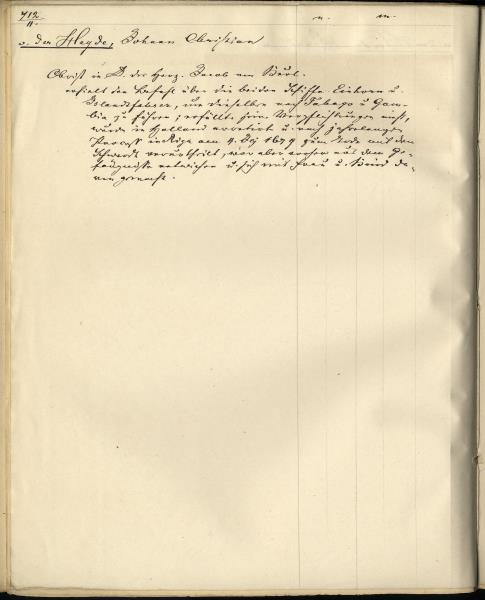 712
II.
v. m.
v. der Heyde, Johann Christian
Obrist in D. des Herz. Jacob von Kurl.
erhielt den Befehl über die beiden Schiffe Einhorn u.
Islandsfahrer, um dieselben nach Tabago u. Gam-
bia zu führen; erfüllte seine Verpflichtungen nicht,
wurde in Holland arretirt u. nach jahrelangem
Process in Riga am 4. 1679 zum Tode mit dem
Schwerdt verurtheilt, war aber vorher aus dem Ge-
fängnisse entwichen u. sich mit Frau u. Kind da-
von gemacht.